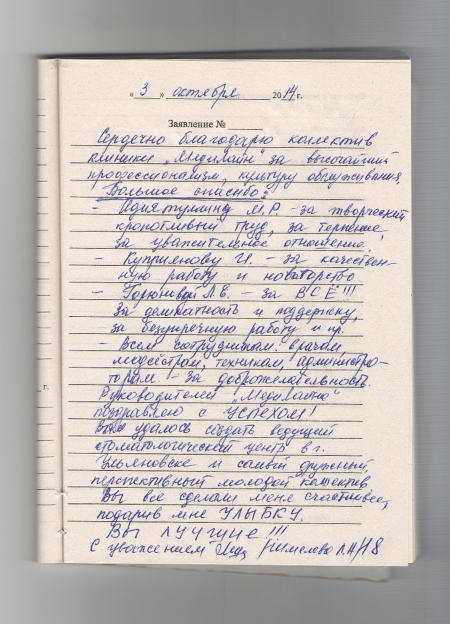 « 3 » октября 2014 г.
Заявление №
Сердечно благодарю коллектив
клиники „Медилайн" за высочайший
профессионализм, культуру обслуживания.
Большое спасибо:
- М.Р. - за творческий
кропотливый труд, за терпение,
за уважительное отношение.
- Куприянову И. - за качествен-
ную работу и новаторство
- Л.В. - за ВСЁ!!!
За деликатность и поддержку,
за безупречную работу и пр.
- Всем сотрудникам: врачам,
медсёстрам, техникам, администра-
торам. - За доброжелательность.
Руководителей „Медилайна"
поздравляю с УСПЕХОМ!
Вам удалось создать ведущий
стоматологический центр в г.
Ульяновске и самый дружный,
перспективный молодой коллектив
Вы все сделали меня счастливее,
подарив мне УЛЫБКУ.
ВЫ ЛУЧШИЕ!!!
С уважением
г.